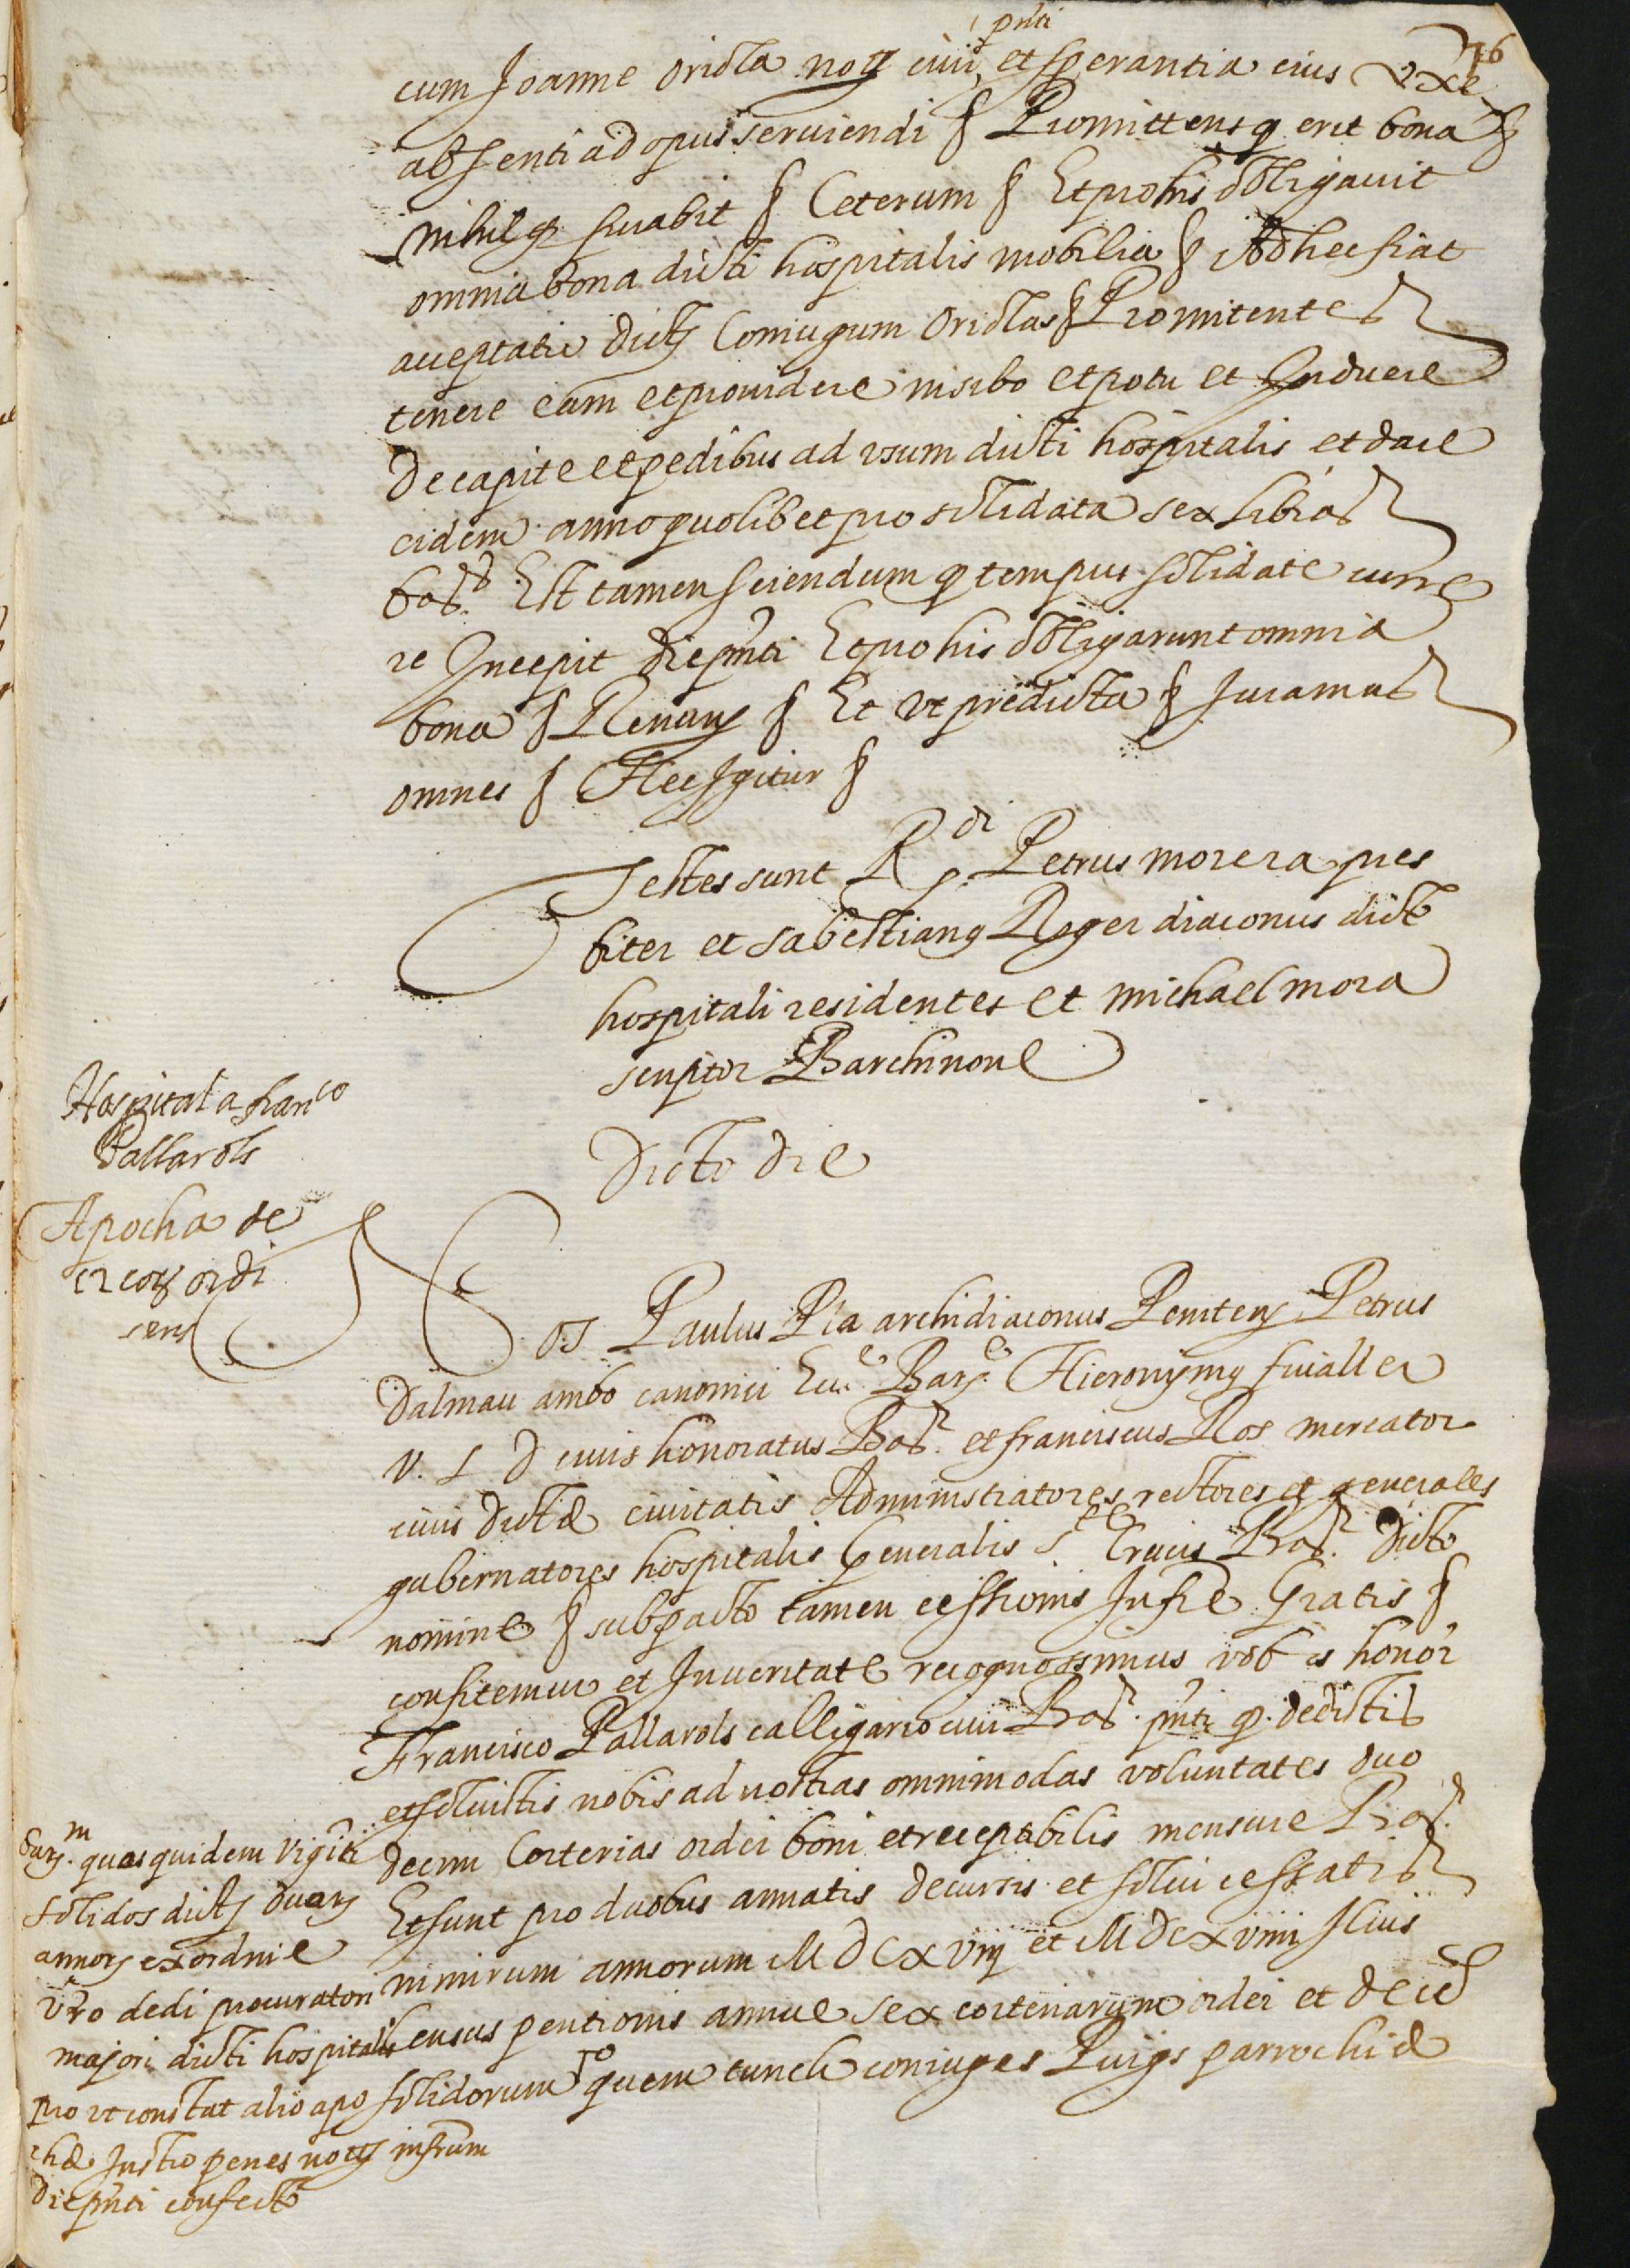 76
pnti
cum Joanne oriola noty civi et sperantia eius uxe
absenti ad opus serviendi § Promittens q erit bona §
nihilq furabit § Ceterum § Et pro his obligavit
omnia bona dicti hospitalis mobilia § Ad hec fiat
acceptatio dictz Coniugum Oriolas § Promitentes
tenere eam et providere in sibo et potu et Induere
de capite et pedibus ad usum dicti hospitalis et dare
eidem anno quolibet pro solidata sex libras
bar. Est tamen sciendum q tempus solidate curre
re Incepit die pnti Et pro his obligarunt omnia
bona § Renuns § Et ut predicta § Juramus
omnes § Hec Igitur §
Testes sunt Rdi p. Petrus morera pres
biter et sabestianq Roger diaconus dicto
hospitali residentes et michael mora
scriptor Barchinone
Dicto die
Hospital a franco
Pallarols
Apocha de
12 cors ordi
sens
Nos Paulus Pla archidiaconus Penitens Petrus
Dalmau ambo canonici Ecce Bare Hieronymq fivaller
V. J. D civis honoratus Bar. et franciscus Ros mercator
civis dicte civitatis Administratores rectores et generales
gubernatores hospitalis Generalis Ste Crucis Bar. Dicto
nomine § sub pacto tamen cessionis Infre Gratis §
confitemur et In veritate recognossimus vobis honor
Francisco Pallarols calligario civi Bar. pnti q. dedistis
et solvistis nobis ad nostras omnimodas voluntates duo
decim Corterias ordei boni et receptabilis mensure Bar.
Et sunt pro duobus annatis decursis et solvi cessatis
nimirum annorum MDCxviij et MDCxviiij Illius
census pentionis annue sex corteriarum ordei et decem
solidorum quem tunch coniuges Puigs parrochie
barm. quas quidem viginti
solidos dictz duarz
annorz ex ordine
vro dedi procuratori
majori dicti hospitalis
pro ut constat alio apo
cha Instro penes notz infrum
die pnti confecto